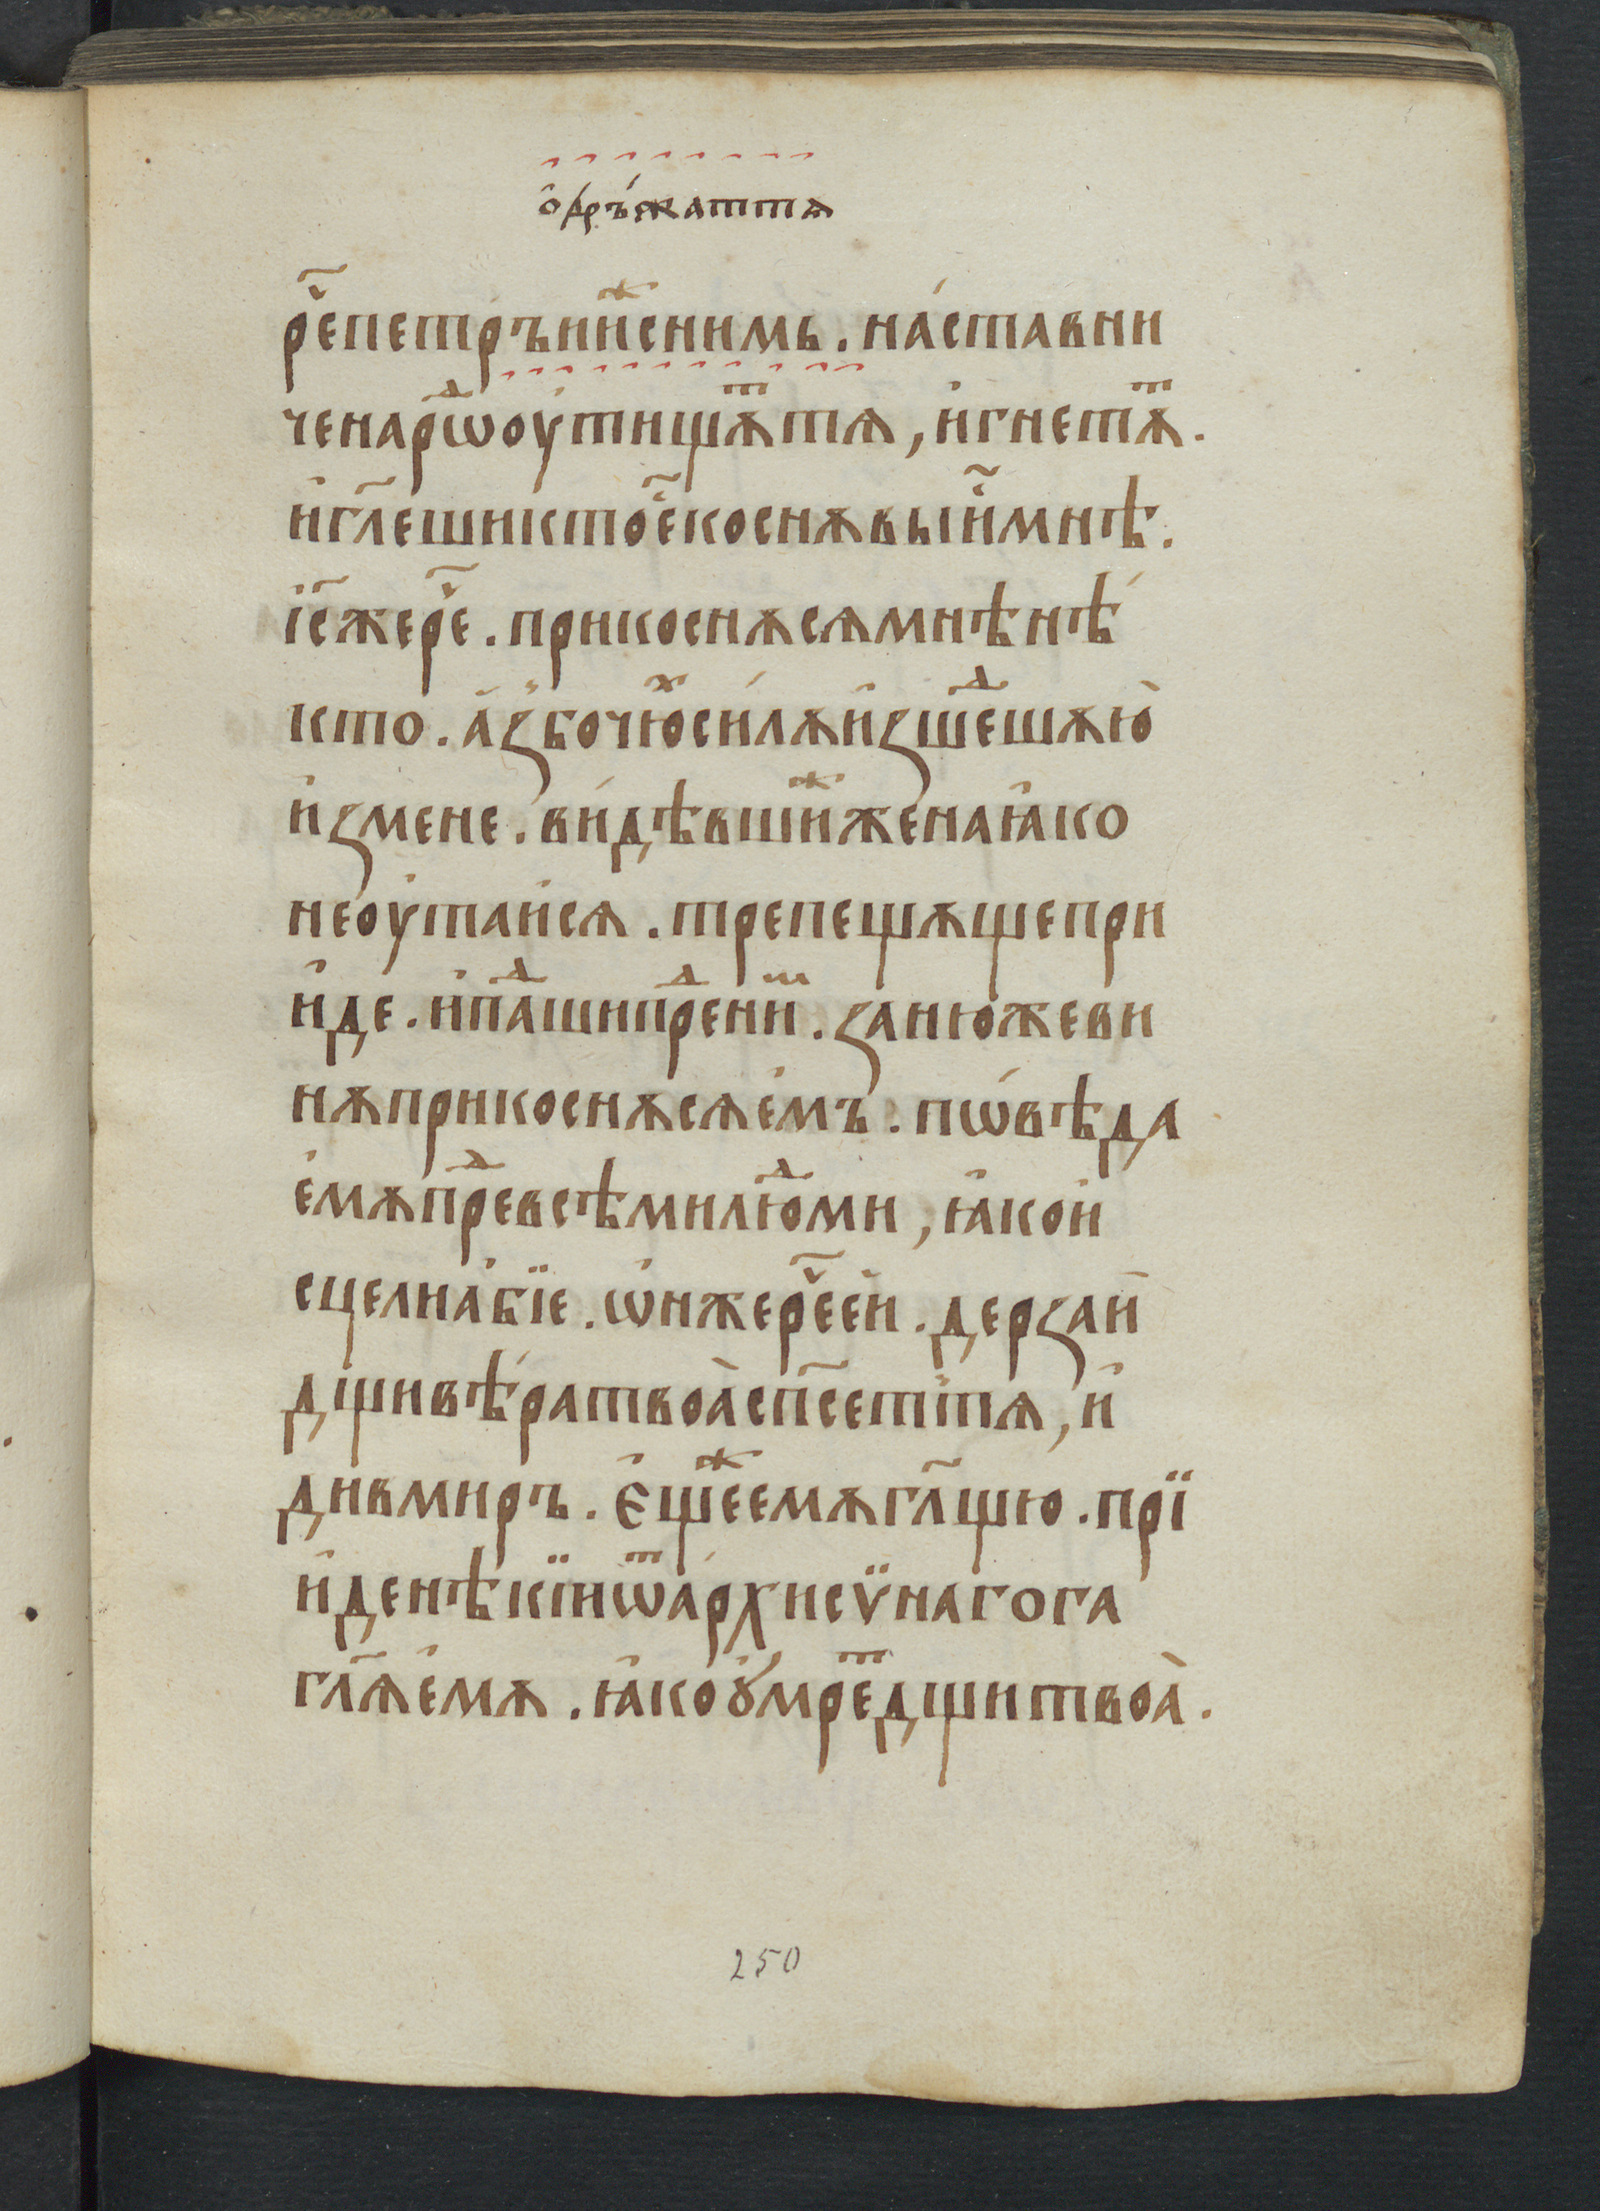 о҆дръ́жаттѧ
рⷱ҇епетръиⷤ҇иснимь . на́ставни
ченарⷪ҇дѡоу҆тищѧⷮтѧ , и҆гнететⷮѧ .
и҆гл҃ешикто̑ⷭ҇екоснѫвыⷭ҇и҆мнѣ .
і҆с҃жерⷱ҇е . прикоснѫсѧмнѣнѣ́
кто . а҆ꙁбочю҆ⷯси́лѫи҆ꙁшеⷣшѫю̀
и҆ꙁмене . ви́дѣвшиⷤженаꙗ҆ко
неоу҆таи҆сѧ . трепещѫщепри
и҆де . и҆паⷣшипреⷣниⷨ . ꙁанюжеви
нѫприкоснѫсѧе҆мъ . пѡ́вѣда
е҆мѫпреⷣвсѣмилюⷣми , ꙗ҆кои
сцелиа҆бїе . ѡ҆нжерⷱ҇еей . дерꙁай
дщивѣ́ратвоа̀сп҃сеттѧ , и҆
дивмиръ . Є҆щеⷤемѫгл҃щю . прї
и҆денѣкїиѿа҆рхисѵ̈нагога
гл҃ѧе҆мѫ . ꙗ҆коꙋ҆мреⷮдщитвоа̀ .
250